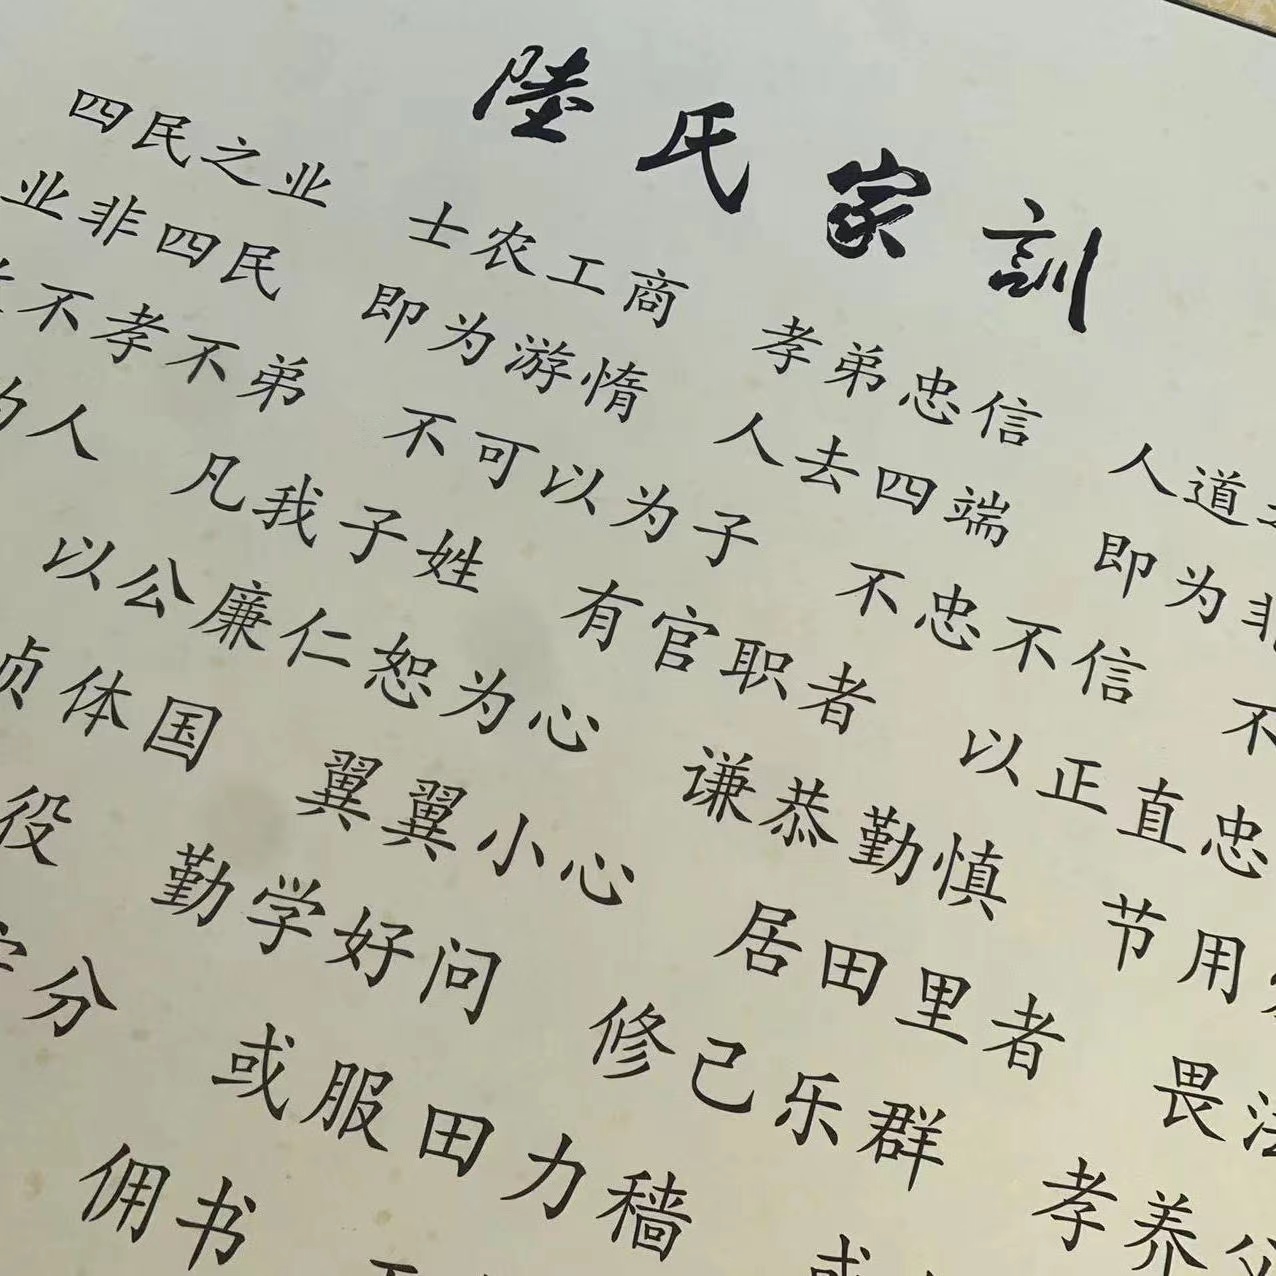 陸氏家訓
四民之业 士农工商 孝弟忠信 人道
业非四民 即为游惰 人去四端 即为非
不孝不弟 不可以为子 不忠不信 不
为人 凡我子姓 有官职者 以正直忠
以公廉仁恕为心 谦恭勤慎 节用
体国 翼翼小心 居田里者 畏法
役 勤学好问 修己乐群 孝养父
分 或服田力穑 或
佣书